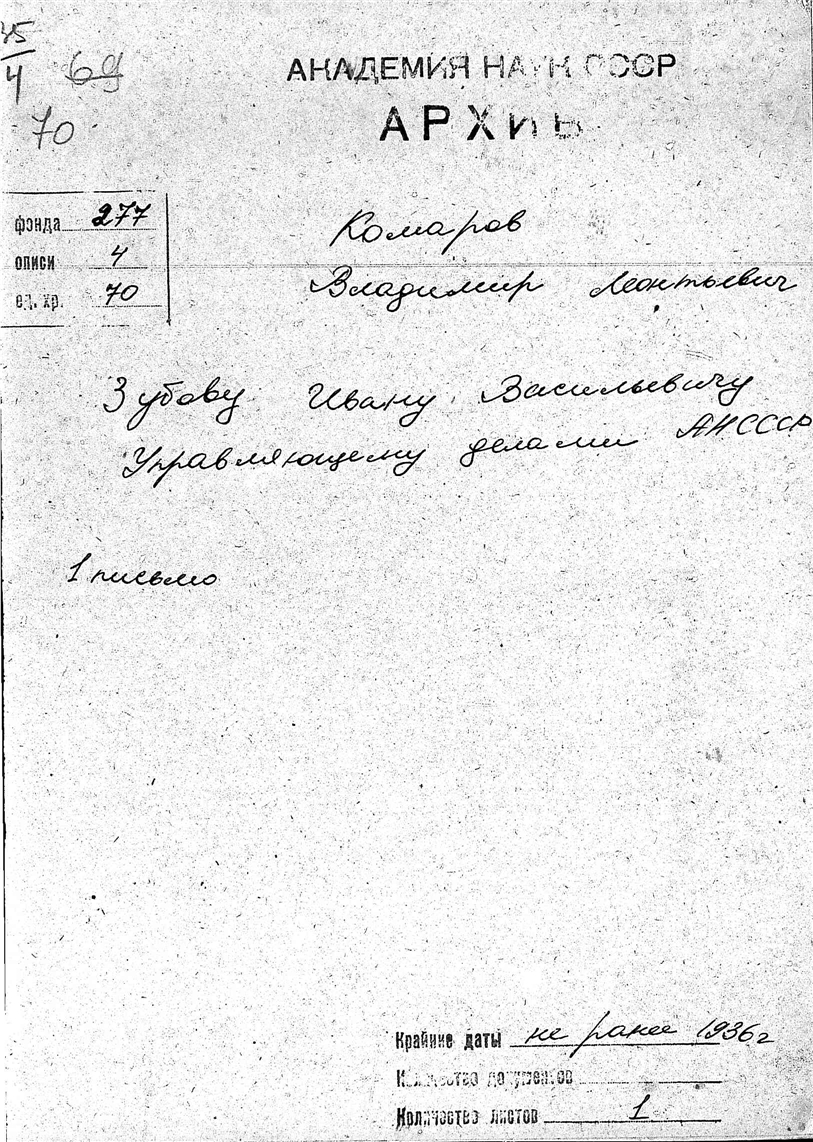 45
4
69
70
АКАДЕМИЯ НАУК СССР
АРХИВ
фонда 277
описи 4
ед. хр. 70
Комаров
Владимир Леонтьевич
Зубову Ивану Васильевичу
Управляющему делами АН СССР
1 письмо
Крайние даты не ранее 1936 г
Количество документов
Количество листов 1